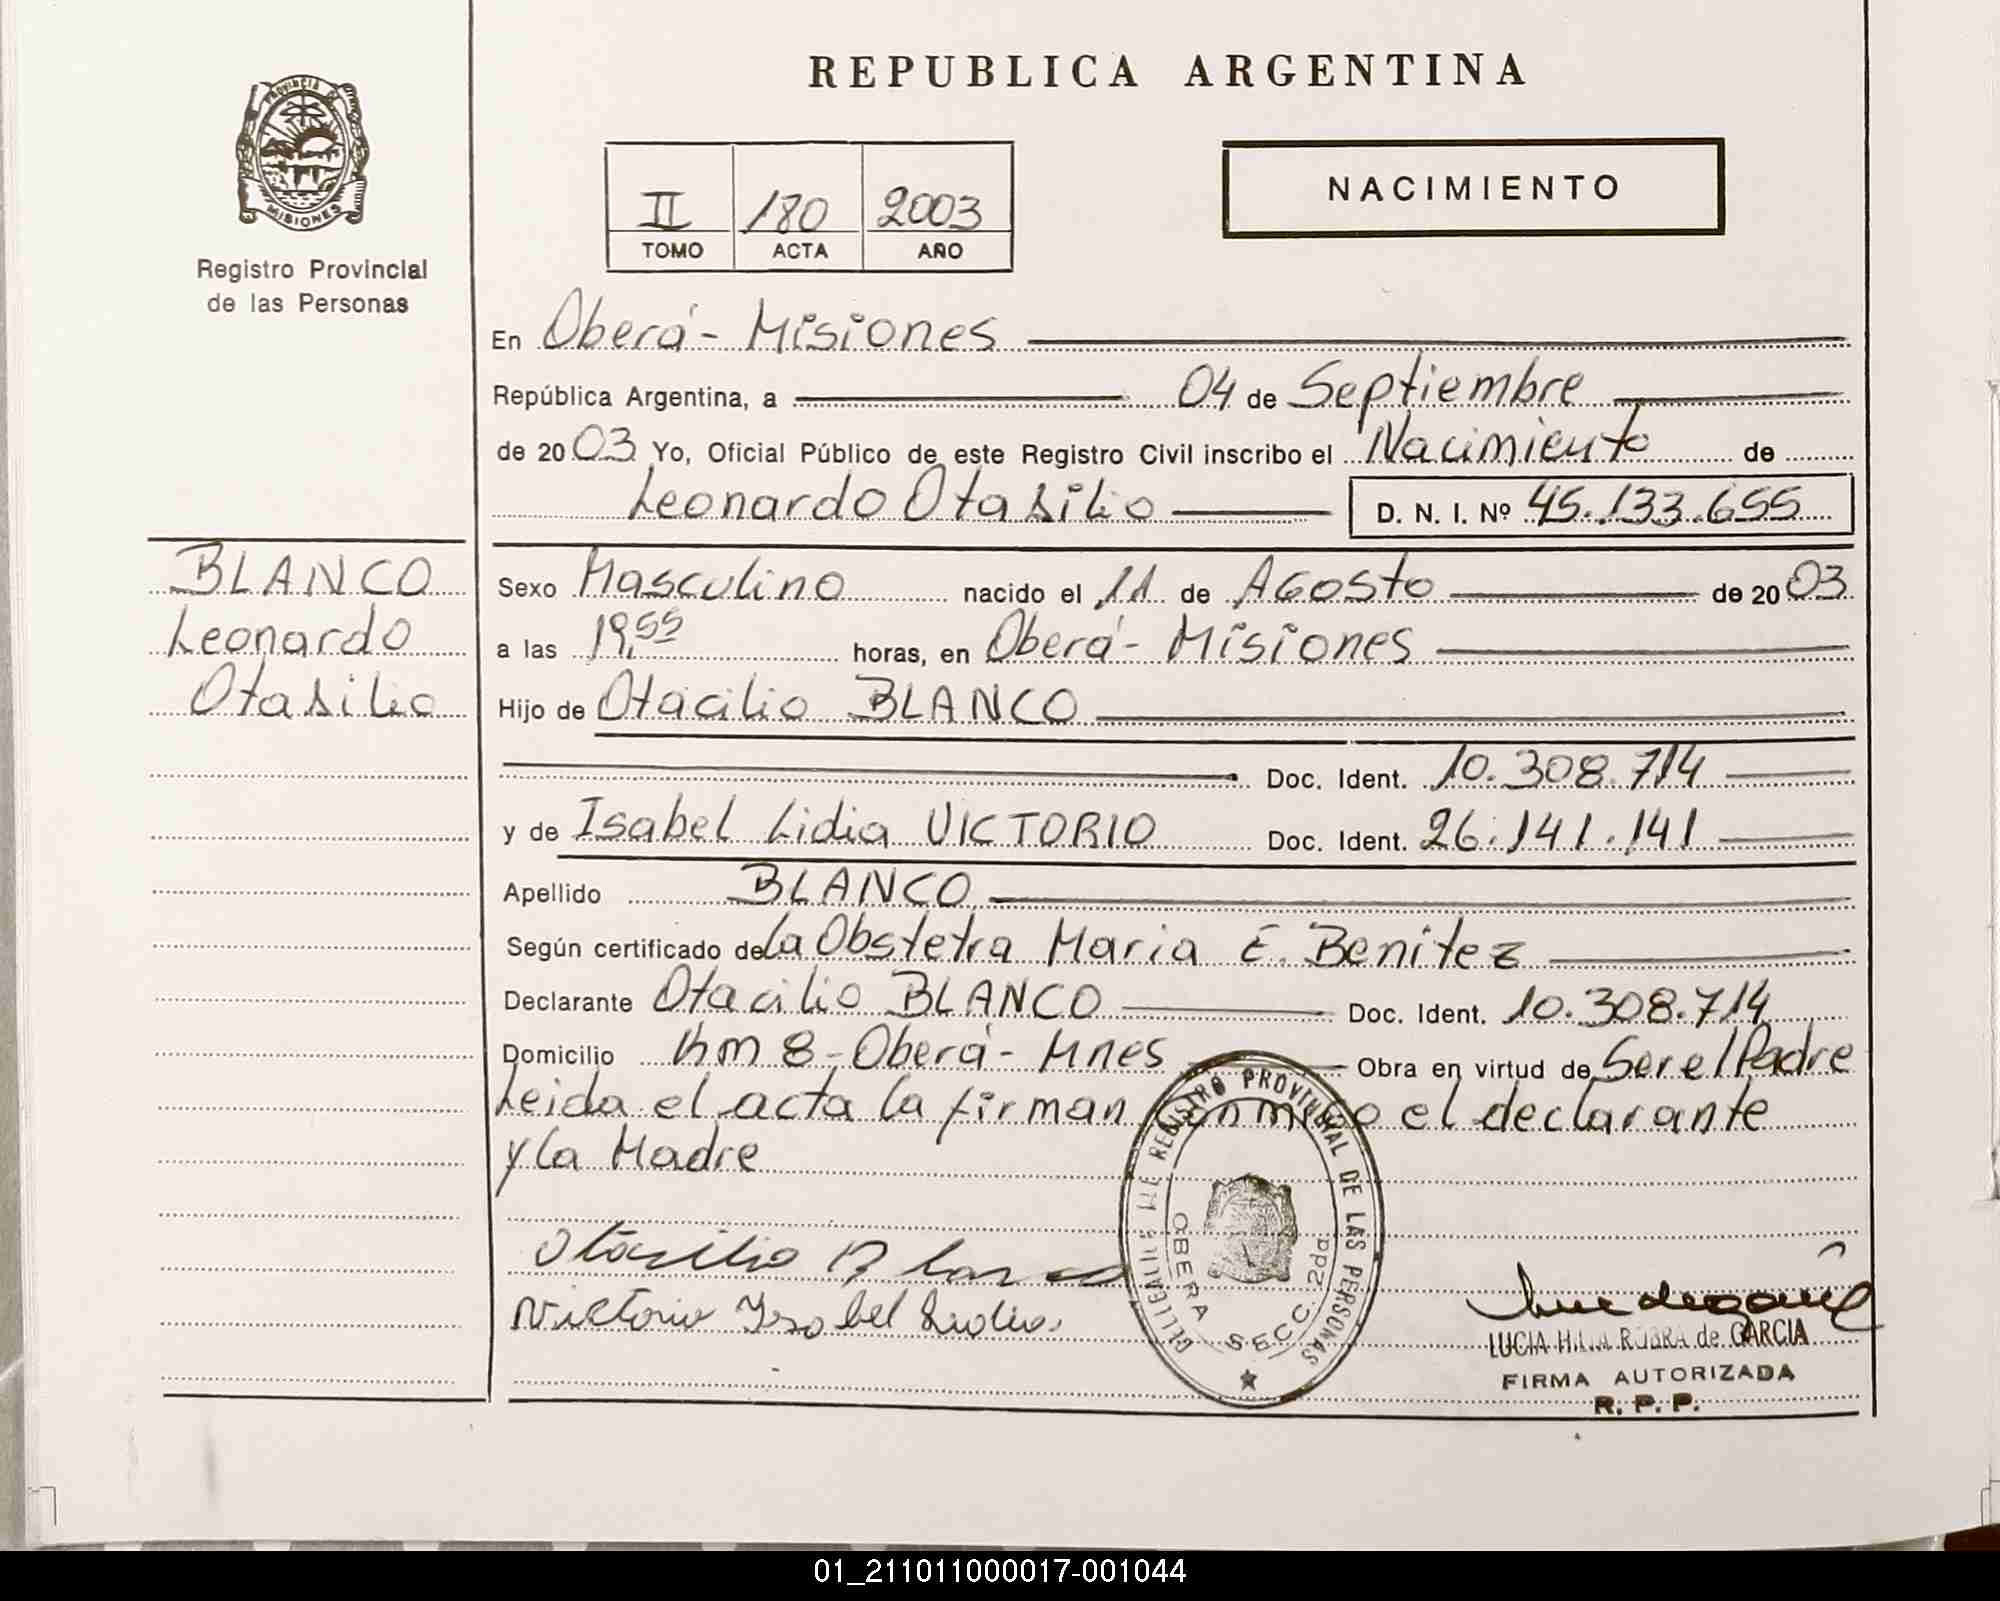 REPUBLICA ARGENTINA
PROVINCIA DE
MISIONES
Registro Provincial
de las Personas
II 180 2003
TOMO ACTA AÑO
NACIMIENTO
En Oberá - Misiones
República Argentina, a 04 de Septiembre
de 2003 Yo, Oficial Público de este Registro Civil inscribo el Nacimiento de
Leonardo Otasilio D. N. I. Nº 45.133.655
BLANCO
Leonardo
Otasilio
Sexo Masculino nacido el 11 de Agosto de 2003
a las 19,55 horas, en Oberá - Misiones
Hijo de Otacilio BLANCO
Doc. Ident. 10.308.714
y de Isabel Lidia VICTORIO Doc. Ident. 26.141.141
Apellido BLANCO
Según certificado de la Obstetra Maria E. Benitez
Declarante Otacilio BLANCO Doc. Ident. 10.308.714
Domicilio Km 8 - Oberá - Mnes Obra en virtud de Ser el Padre
Leida el acta la firman conmigo el declarante
y la Madre
Otasilio Blanco
Victorio Isabel Lidia
REGISTRO PROVINCIAL DE LAS PERSONAS
OBERA SECC. 2da
LUCIA HILDA ROBRA de GARCIA
FIRMA AUTORIZADA
R. P. P.
01_211011000017-001044